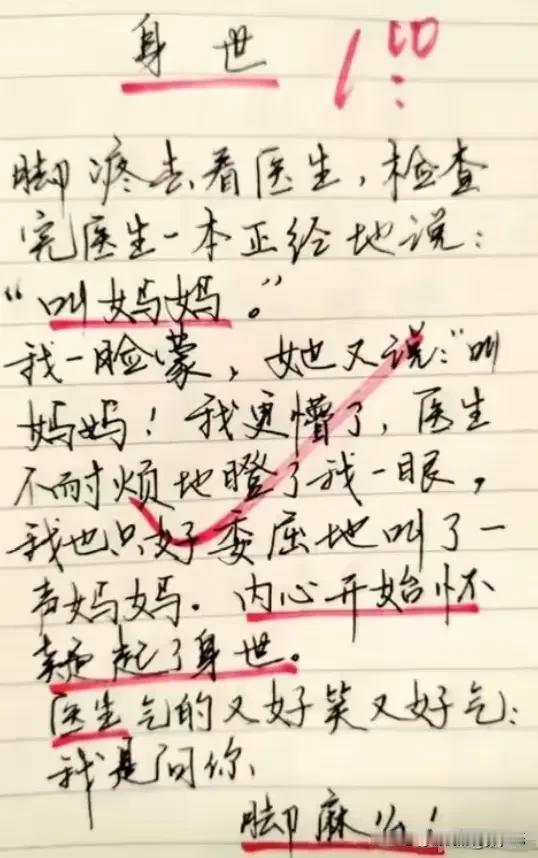 身世
100
脚疼去看医生，检查
完医生一本正经地说：
“叫妈妈。”
我一脸蒙，她又说：“叫
妈妈！我更懵了，医生
不耐烦地瞪了我一眼，
我也只好委屈地叫了一
声妈妈．内心开始怀
疑起了身世。
医生气的又好笑又好气：
我是问你、
脚麻么！